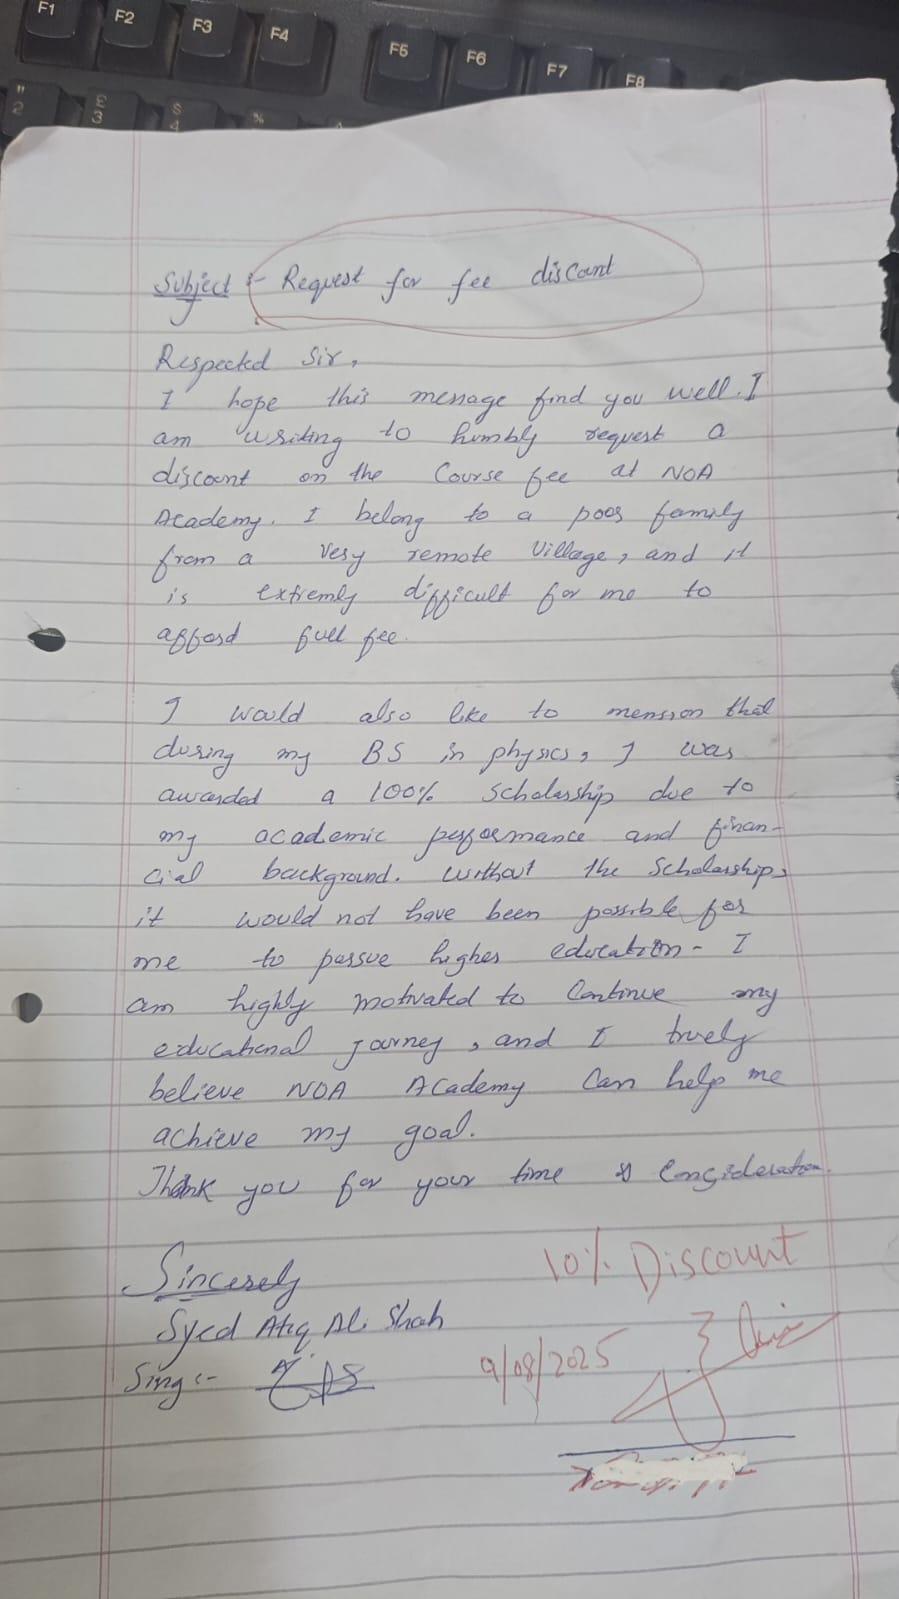 F1 F2 F3 F4 F5 F6 F7 F8
" 2 £ 3 $ 4 %
Subject :- Request for fee discount
Respected Sir,
I hope this message find you well. I
am writing to humbly request a
discount on the Course fee at NOA
Academy. I belong to a poor family
from a very remote village, and it
is extremly difficult for me to
afford full fee.
I would also like to mension that
during my BS in physics, I was
awarded a 100% Scholarship due to
my academic performance and finan-
cial background. without the Scholarship,
it would not have been possible for
me to persue higher education - I
am highly motivated to Continue my
educational journey, and I truely
believe NOA Academy Can help me
achieve my goal.
Thank you for your time & Consideration.
Sincerely
Syed Atiq Ali Shah
Sing :-
10% Discount
9/08/2025